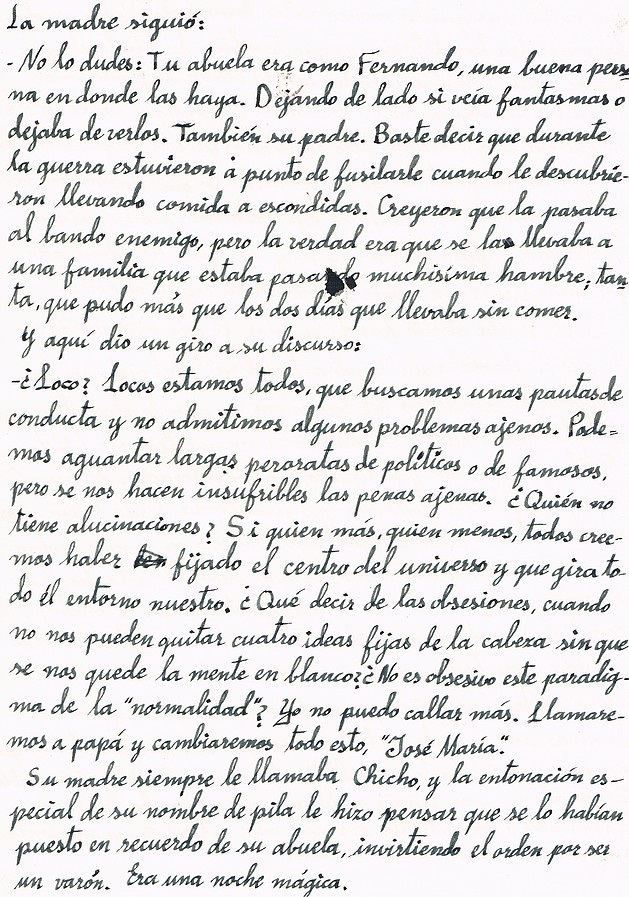 La madre siguió:
- No lo dudes: Tu abuela era como Fernando, una buena perso
na en donde las haya. Dejando de lado si veía fantasmas o
dejaba de verlos. También su padre. Baste decir que durante
la guerra estuvieron a punto de fusilarle cuando le descubrie-
ron llevando comida a escondidas. Creyeron que la pasaba
al bando enemigo, pero la verdad era que se la llevaba a
una familia que estaba pasando muchísima hambre; tan-
ta, que pudo más que los dos días que llevaba sin comer.
Y aquí dio un giro a su discurso:
-¿Loco? Locos estamos todos, que buscamos unas pautas de
conducta y no admitimos algunos problemas ajenos. Pode=
mos aguantar largas peroratas de políticos o de famosos,
pero se nos hacen insufribles las penas ajenas. ¿Quién no
tiene alucinaciones? Si quien más, quien menos, todos cree-
mos haber fijado el centro del universo y que gira to-
do él entorno nuestro. ¿Qué decir de las obsesiones, cuando
no nos pueden quitar cuatro ideas fijas de la cabeza sin que
se nos quede la mente en blanco? ¿No es obsesivo este paradig-
ma de la "normalidad"? Yo no puedo callar más. Llamare-
mos a papá y cambiaremos todo esto, "José María".
Su madre siempre le llamaba Chicho, y la entonación es-
pecial de su nombre de pila le hizo pensar que se lo habían
puesto en recuerdo de su abuela, invirtiendo el orden por ser
un varón. Era una noche mágica.